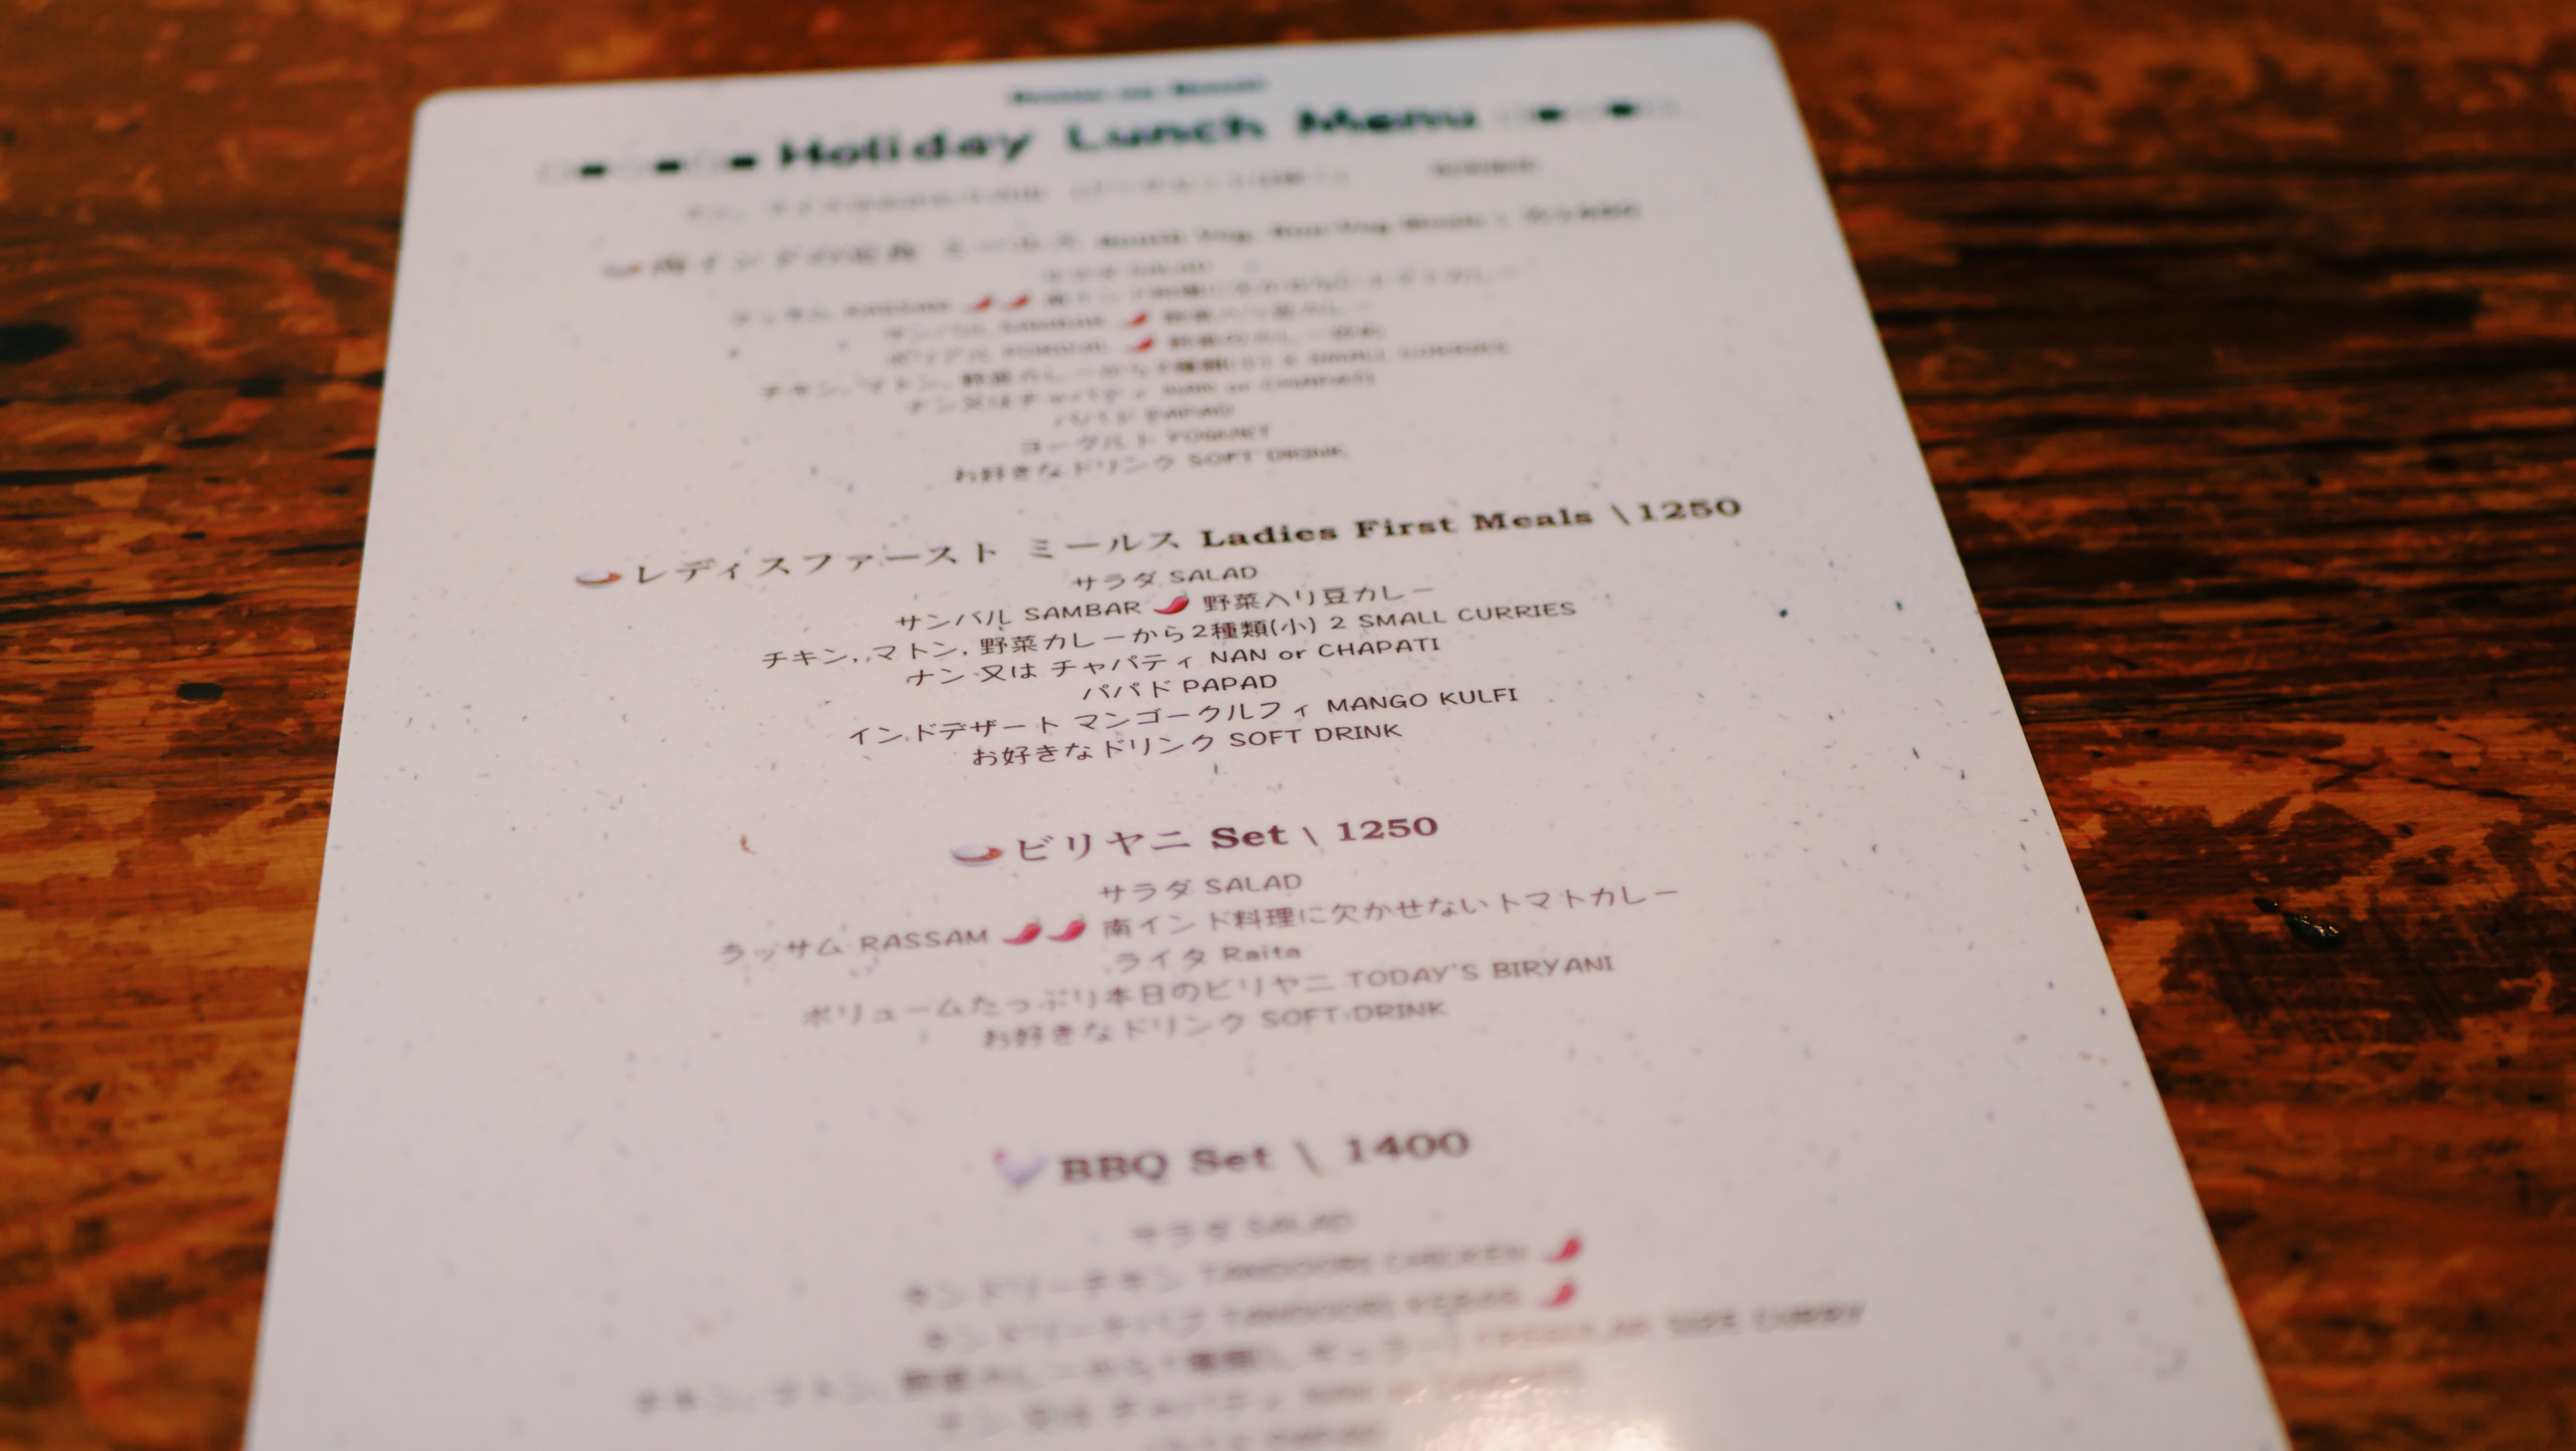 Holiday Lunch Menu
南インドの定食 ミールス South Veg, Non-Veg Meals \
サラダ SALAD
ラッサム RASSAM 南インド料理に欠かせないトマトカレー
サンバル SAMBAR 野菜入り豆カレー
ポリアル PORIYAL 野菜の
チキン, マトン, 野菜カレーから2種類(小) 2 SMALL CURRIES
ナン又はチャパティ NAN or CHAPATI
パパド PAPAD
ヨーグルト YOGURT
お好きなドリンク SOFT DRINK
レディスファースト ミールス Ladies First Meals \1250
サラダ SALAD
サンバル SAMBAR 野菜入り豆カレー
チキン, マトン, 野菜カレーから2種類(小) 2 SMALL CURRIES
ナン 又は チャパティ NAN or CHAPATI
パパド PAPAD
インドデザート マンゴークルフィ MANGO KULFI
お好きなドリンク SOFT DRINK
ビリヤニ Set \ 1250
サラダ SALAD
ラッサム RASSAM 南インド料理に欠かせないトマトカレー
ライタ Raita
ボリュームたっぷり本日のビリヤニ TODAY'S BIRYANI
お好きなドリンク SOFT DRINK
BBQ Set \ 1400
サラダ SALAD
タンドリーチキン TANDOORI CHICKEN
タンドリーケバブ TANDOORI KEBAB
チキン, マトン, 野菜カレーから1種類 レギュラー REGULAR SIZE CURRY
ナン 又は チャパティ NAN or CHAPATI